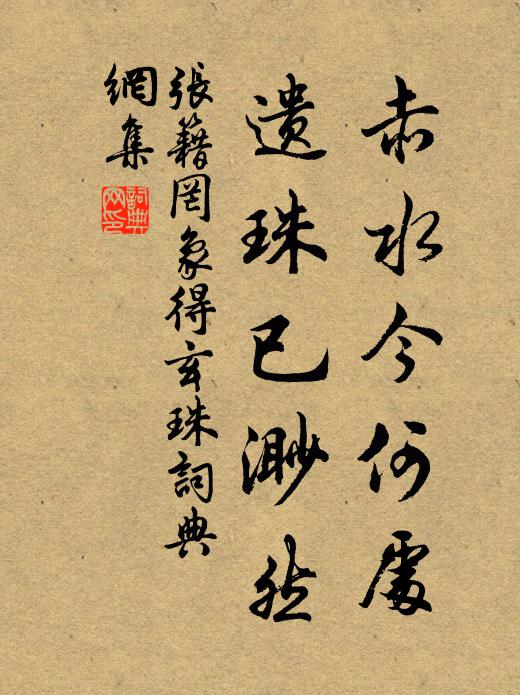 赤水今何處
遺珠已渺然
張籍罔象得玄珠詞典
網集
詞典
网印